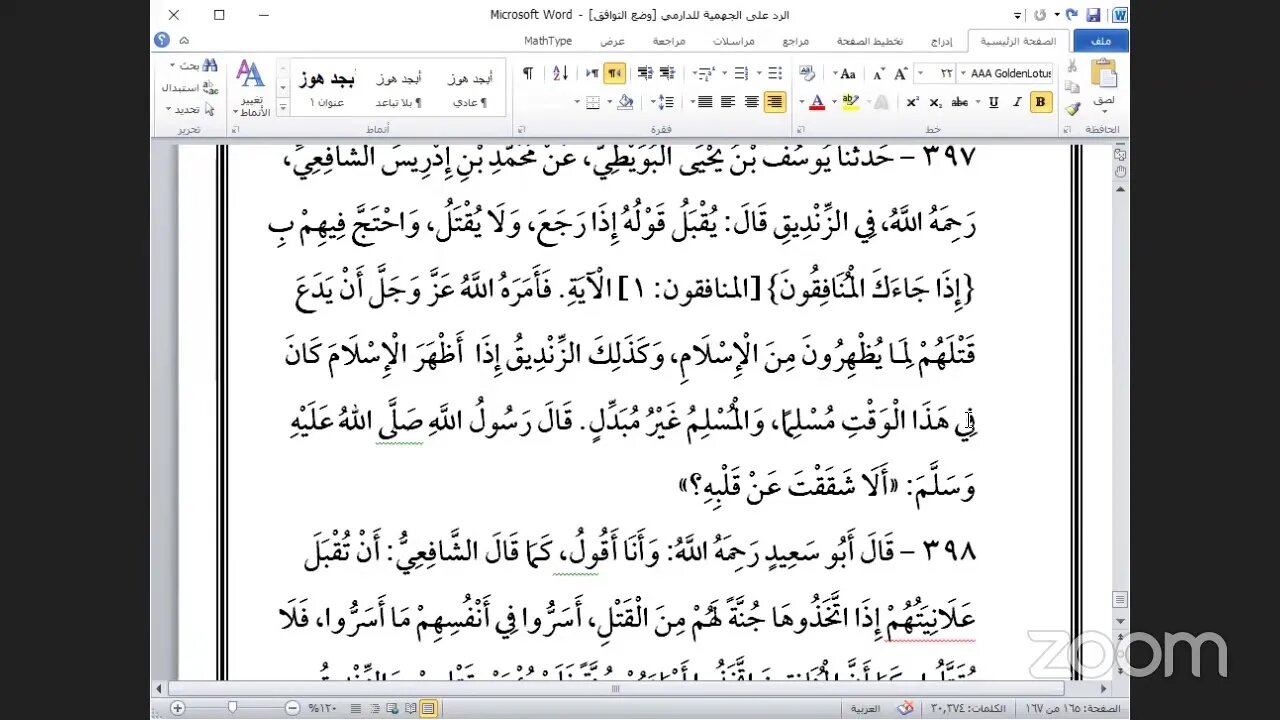 الرد على الجهمية للدارمي [وضع التوافق] - Microsoft Word
ملف
الصفحة الرئيسية
إدراج
تخطيط الصفحة
مراجع
مراسلات
مراجعة
عرض
MathType
لصق
الحافظة
AAA GoldenLotus
٢٢
خط
فقرة
أبجد هوز
¶ عادي
أبجد هوز
¶ بلا تباعد
أبجد هوز
عنوان ١
تغيير الأنماط
أنماط
بحث
استبدال
تحديد
تحرير
٣٩٧ – حَدَّثَنَا يُوسُفُ بْنُ يَحْيَى الْبُوَيْطِيُّ، عَنْ مُحَمَّدِ بْنِ إِدْرِيسَ الشَّافِعِيِّ،
رَحِمَهُ اللَّهُ، فِي الزِّنْدِيقِ قَالَ: يُقْبَلُ قَوْلُهُ إِذَا رَجَعَ، وَلَا يُقْتَلُ، وَاحْتَجَّ فِيهِمْ بِ
{إِذَا جَاءَكَ الْمُنَافِقُونَ} [المنافقون: ١] الْآيَةِ. فَأَمَرَهُ اللَّهُ عَزَّ وَجَلَّ أَنْ يَدَعَ
قَتْلَهُمْ لِمَا يُظْهِرُونَ مِنَ الْإِسْلَامِ، وَكَذَلِكَ الزِّنْدِيقُ إِذَا أَظْهَرَ الْإِسْلَامَ كَانَ
فِي هَذَا الْوَقْتِ مُسْلِمًا، وَالْمُسْلِمُ غَيْرُ مُبَدِّلٍ. قَالَ رَسُولُ اللَّهِ صَلَّى اللهُ عَلَيْهِ
وَسَلَّمَ: «أَلَا شَقَقْتَ عَنْ قَلْبِهِ؟»
٣٩٨ – قَالَ أَبُو سَعِيدٍ رَحِمَهُ اللَّهُ: وَأَنَا أَقُولُ، كَمَا قَالَ الشَّافِعِيُّ: أَنْ تُقْبَلَ
عَلَانِيَتُهُمْ إِذَا اتَّخَذُوهَا جُنَّةً لَهُمْ مِنَ الْقَتْلِ، أَسَرُّوا فِي أَنْفُسِهِمْ مَا أَسَرُّوا، فَلَا
zoom
الصفحة: ١٦٥ من ١٦٧
الكلمات: ٢٠,٢٧٤
العربية
١٢٠%